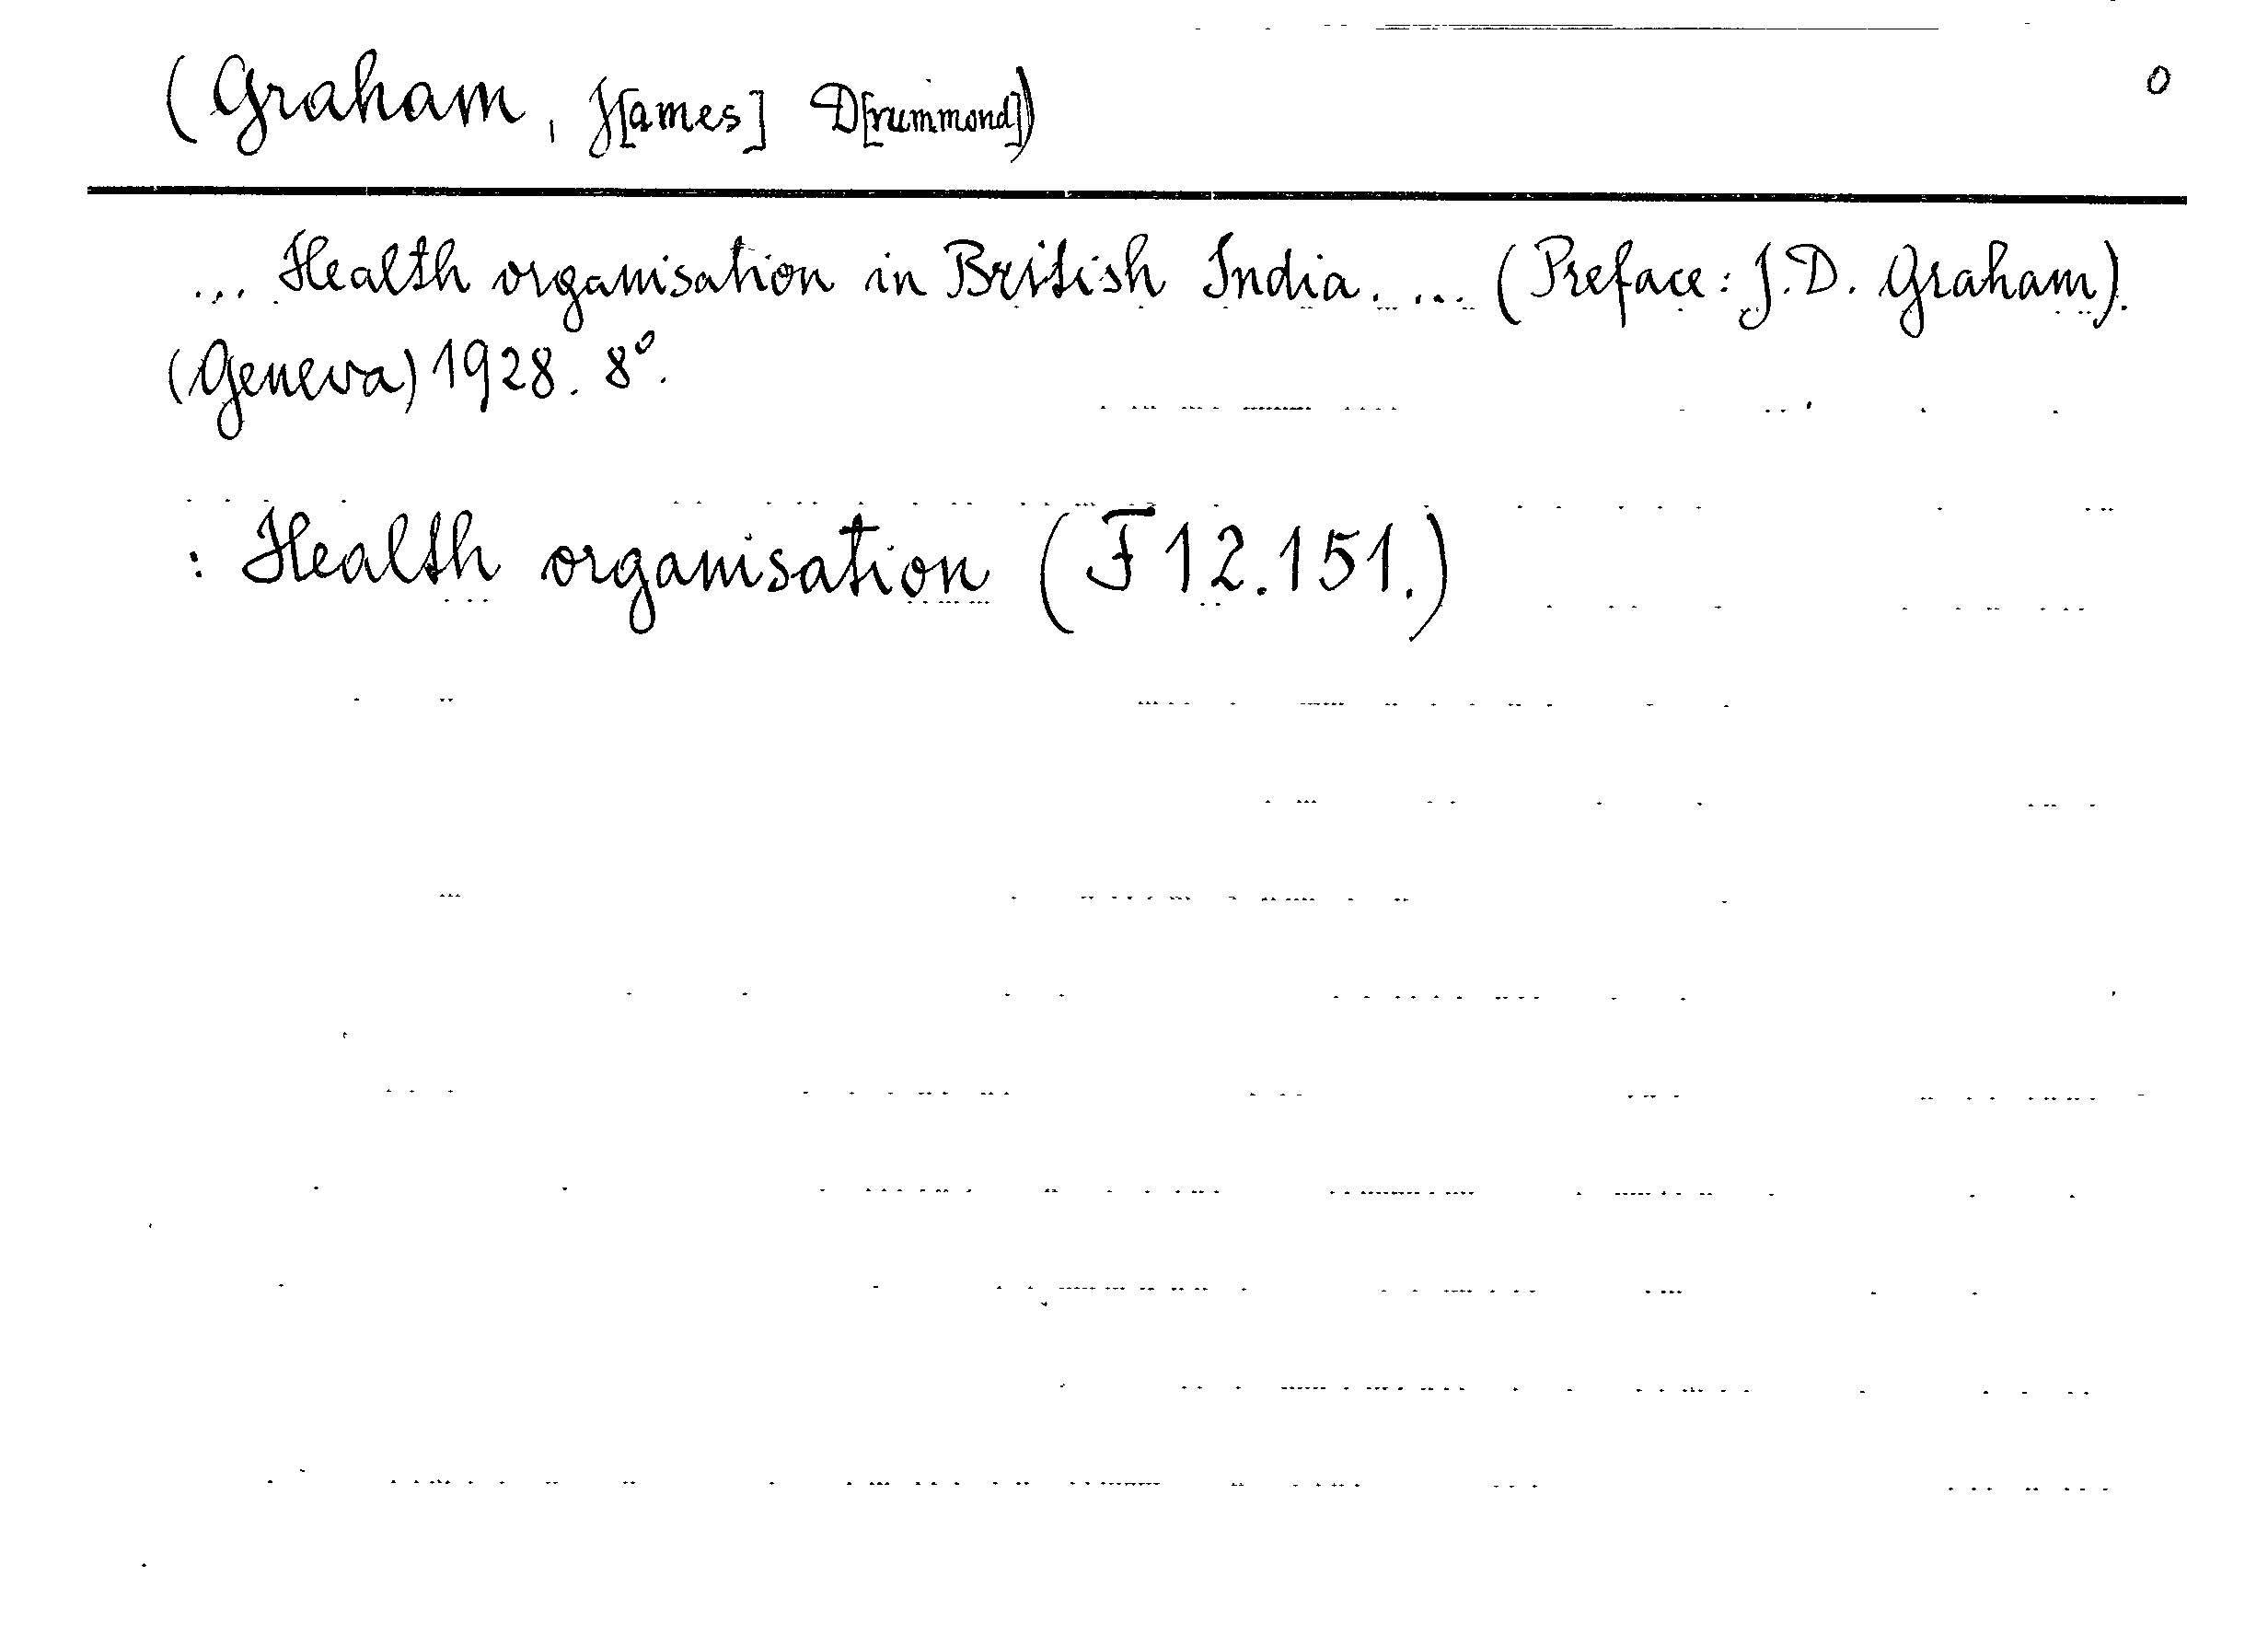 (Graham, J[ames] D[rummond]) 0
... Health organisation in British India. ... (Preface: J.D. Graham).
(Geneva) 1928. 8°.
: Health organisation (F 12.151.)